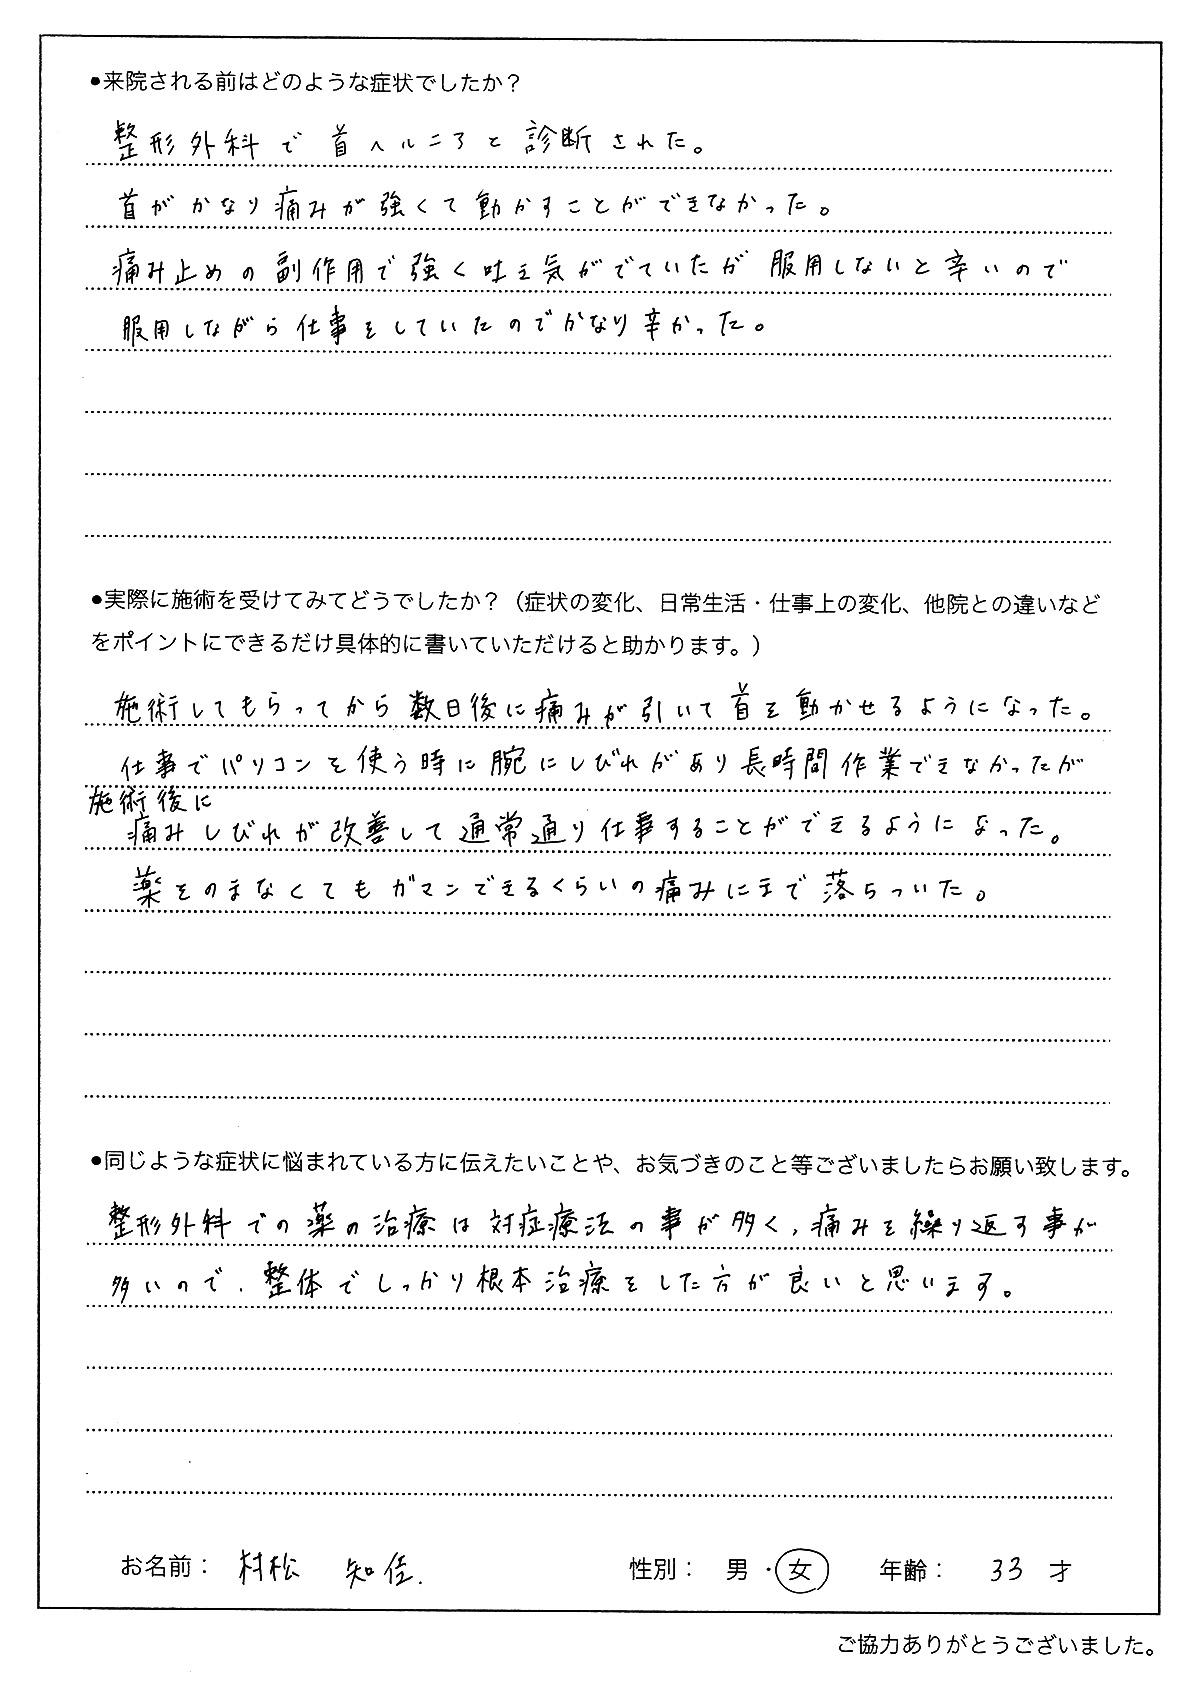 ●来院される前はどのような症状でしたか？
整形外科で首ヘルニアと診断された。
首がかなり痛みが強くて動かすことができなかった。
痛み止めの副作用で強く吐き気がでていたが服用しないと辛いので
服用しながら仕事をしていたのでかなり辛かった。
●実際に施術を受けてみてどうでしたか？（症状の変化、日常生活・仕事上の変化、他院との違いなど
をポイントにできるだけ具体的に書いていただけると助かります。）
施術してもらってから数日後に痛みが引いて首を動かせるようになった。
仕事でパソコンを使う時に腕にしびれがあり長時間作業できなかったが
施術後に
痛みしびれが改善して通常通り仕事することができるようになった。
薬をのまなくてもガマンできるくらいの痛みにまで落ちついた。
●同じような症状に悩まれている方に伝えたいことや、お気づきのこと等ございましたらお願い致します。
整形外科での薬の治療は対症療法の事が多く、痛みを繰り返す事が
多いので、整体でしっかり根本治療をした方が良いと思います。
お名前： 村松 知佳. 性別： 男・女 年齢： 33 才
ご協力ありがとうございました。